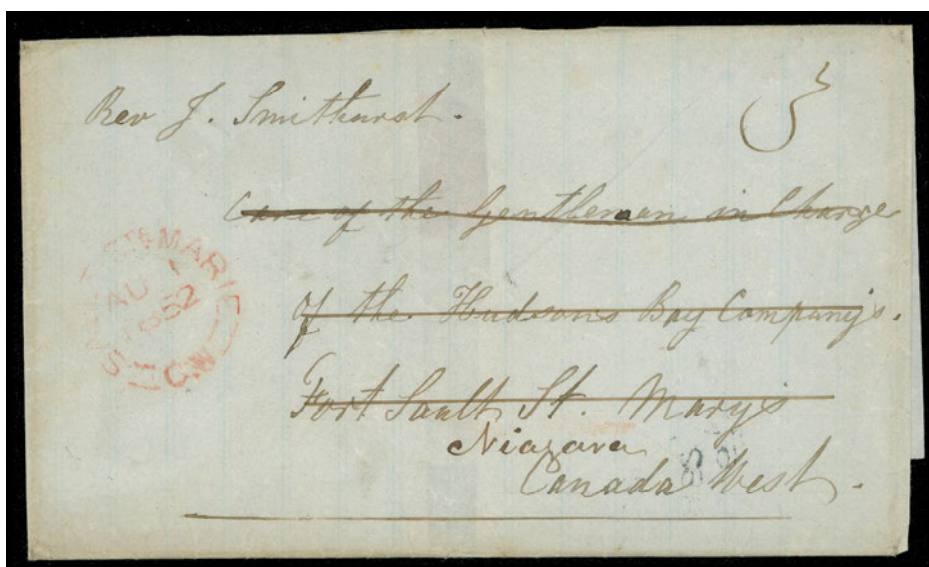 Rev J. Smithurst.
3
Care of the Gentleman in Charge
of the Hudsons Bay Company's.
Fort Sault St. Mary's
Niagara
Canada West.
SAULT STE MARIE
AU 1
1852
C.W